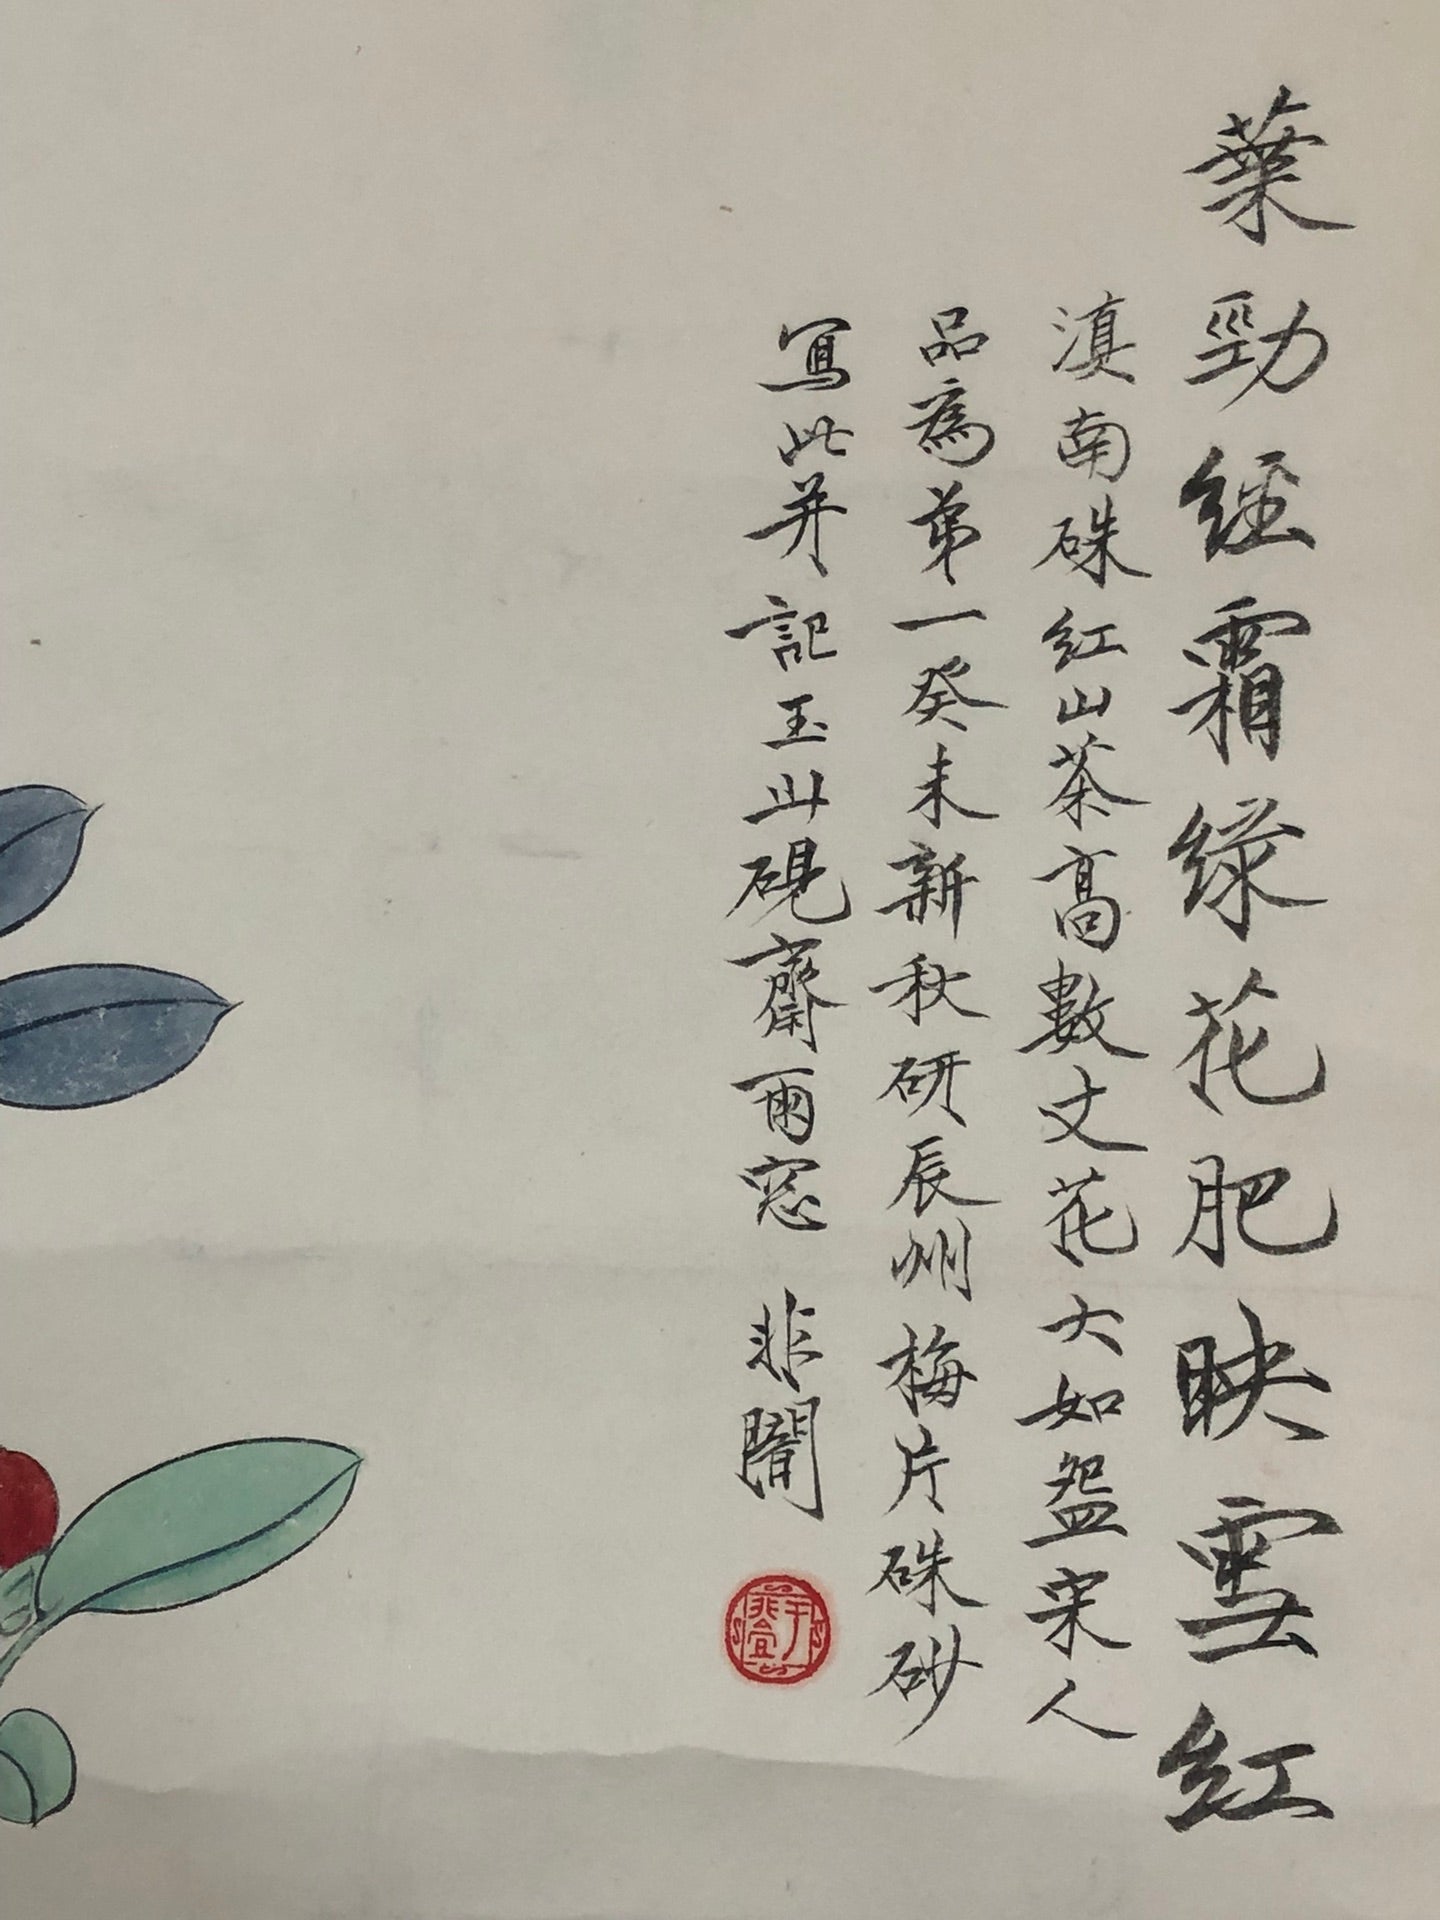 葉勁經霜綠花肥映雪紅
滇南硃紅山茶高數丈花大如盌宋人
品為第一癸未新秋研辰州梅片硃砂
寫此并記玉山硯齋雨窓 非闇